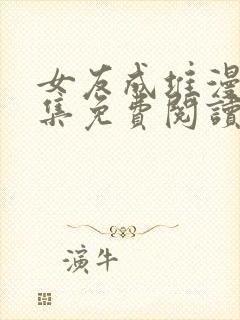 女友成堆漫
集免費閱讀
演牛